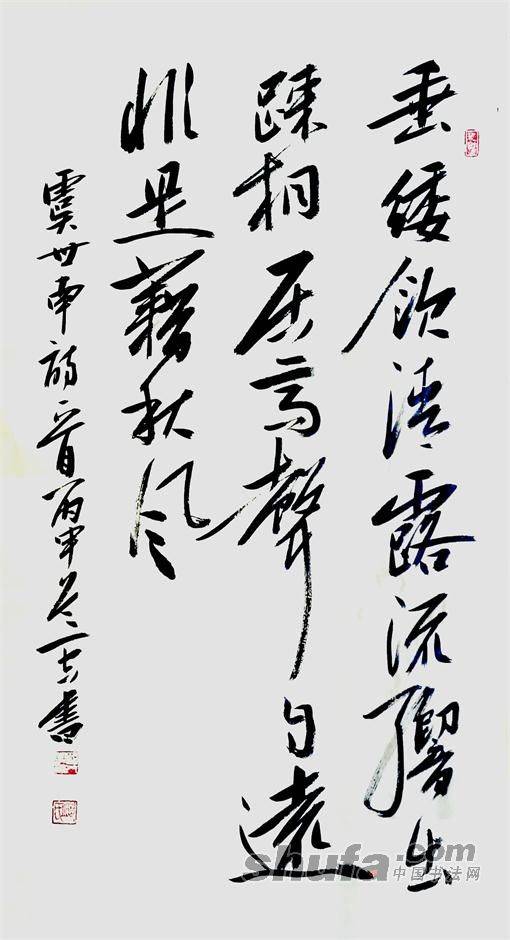 垂緌飲清露流響出
疎桐居高聲自遠
非是藉秋風
虞世南詩一首丙申冬書
shufa.com
中国书法网